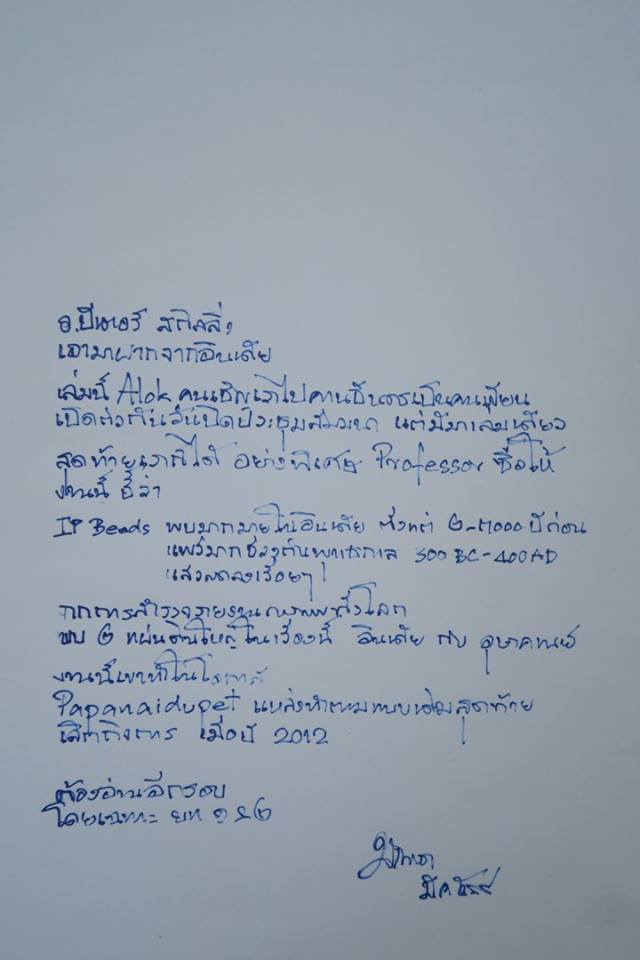 อ.ปีเตอร์ สกิลลิ่ง
เอามาฝากจากอินเดีย
เล่มนี้ Alok คนเชิญเราไปคานธีนครเป็นคนเขียน
เปิดตัวกันวันปิดประชุมสัมมนา แต่มีมาเล่มเดียว
สุดท้ายเราก็ได้ อย่างพิเศษ Professor ซื้อให้
งานนี้ ชี้ว่า
IP Beads พบมากมายในอินเดีย ตั้งแต่ ๒-๓๐๐๐ ปีก่อน
แพร่มากช่วงต้นพุทธกาล 300 BC-400AD
แล้วลดลงเรื่อยๆ!
จากการสำรวจรายงานการพบทั่วโลก
พบ ๒ แผ่นดินใหญ่ในเรื่องนี้ อินเดีย กับ อุษาคเนย์
งานนี้เขาทำในโรงหลัง
Papanaidupet แหล่งทำตามแบบเดิมสุดท้าย
เลิกกิจการ เมื่อปี 2012
ต้องอ่านอีกรอบ
โดยเฉพาะ บท ๑ & ๒
มีค